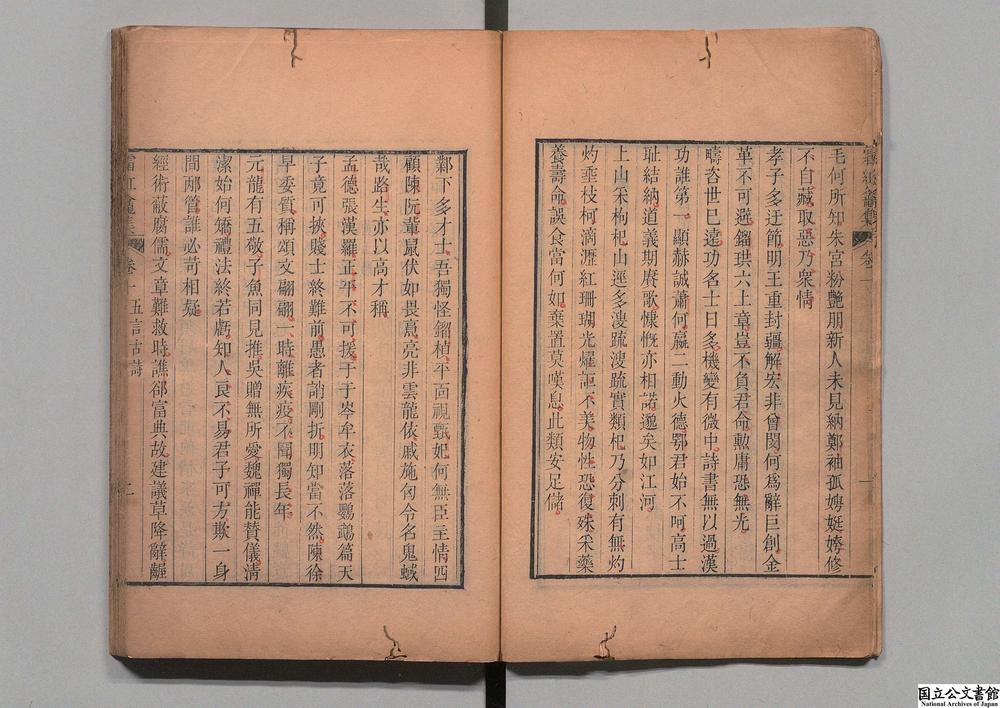 毛何所知朱宮粉艷朋新人未見納鄭袖孤娉娗姱修
不自藏取惡乃衆情
孝子多迂節明王重封疆解宏非曾閔何爲辭巨創金
革不可避鎦珙六上章豈不負君命勲庸恐無光
疇咨世已遠功名士日多機變有微中詩書無以過漢
功誰第一顯赫誠蕭何嬴二動火德鄂君始不呵高士
耻結納道義期賡歌慷慨亦相諾邈矣如江河
上山采枸杞山逕多溲疏溲疏實類杞乃分刺有無灼
灼垂枝柯滴瀝紅珊瑚光燿詎不美物性恐復殊采藥
養壽命誤食當何如棄置莫嘆息此類安足儲
鄴下多才士吾獨怪鎦楨平面視甄妃何無臣主情四
顧陳阮輩鼠伏如畏亮非雲龍依戚施匃令名鬼蜮
哉路生亦以高才稱
孟德張漢羅正平不可援于于岑牟衣落落鸚鵡篇天
子竟可挾賤士終難前愚者誚剛折明知當不然陳徐
早委質稱頌文翩翩一時離疾疫不聞獨長年
元龍有五敬子魚同見推吳贈無所愛魏禪能贊儀清
潔始何矯禮法終若虧知人良不易君子可方欺一身
間兩管誰必苛相疑
經術蔽腐儒文章難救時譙郤富典故建議草降辭齷
霜紅龕集 卷一 五言古詩 二